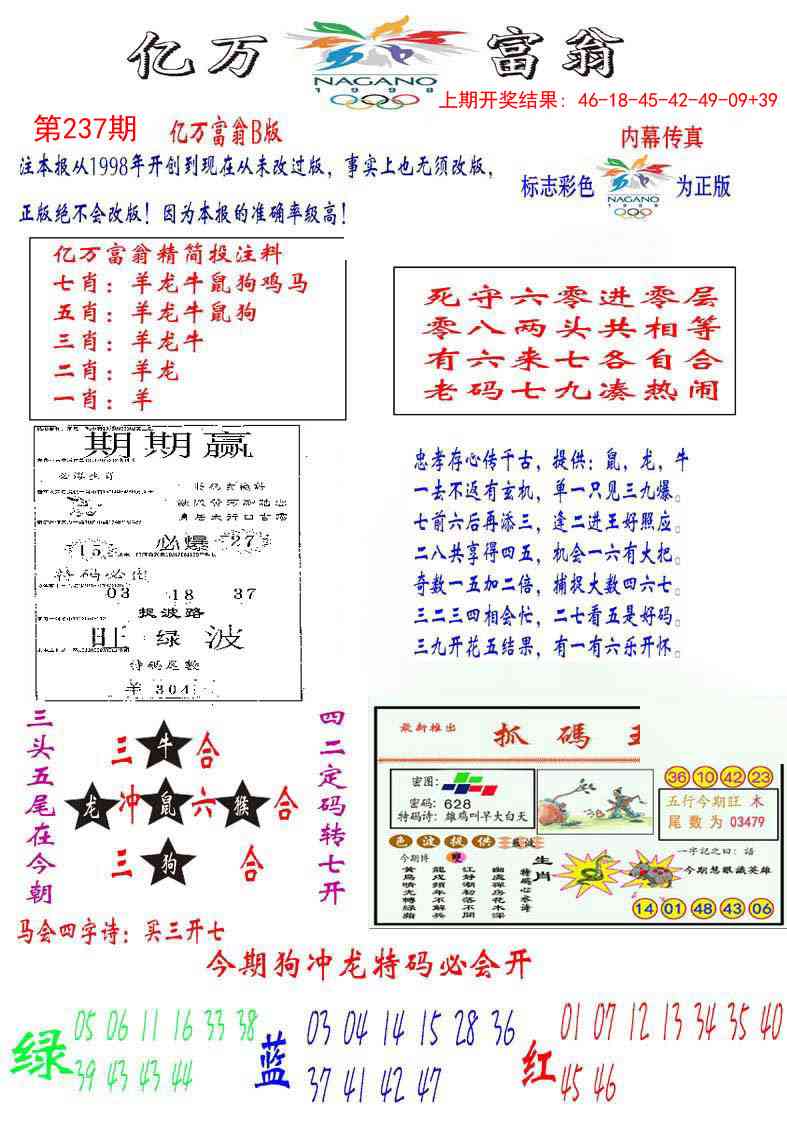 亿万 富翁
NAGANO
1998
上期开奖结果: 46-18-45-42-49-09+39
第237期 亿万富翁B版
内幕传真
注本报从1998年开创到现在从未改过版，事实上也无须改版，
正版绝不会改版！因为本报的准确率级高！
标志彩色
NAGANO
1998
为正版
亿万富翁精简投注料
七肖：羊龙牛鼠狗鸡马
五肖：羊龙牛鼠狗
三肖：羊龙牛
二肖：羊龙
一肖：羊
死守六零进零层
零八两头共相等
有六来七各自合
老码七九凑热闹
期期赢
必爆
15
27
特码必出
03 18 37
捉波路
旺绿波
特码尾数
羊304
忠孝存心传千古，提供：鼠，龙，牛
一去不返有玄机，单一只见三九爆。
七前六后再添三，逢二进王好照应。
二八共享得四五，机会一六有大把。
奇数一五加二倍，捕捉大数四六七。
三二三四相会忙，二七看五是好码。
三九开花五结果，有一有六乐开怀。
三头五尾在今朝
三 牛 合
龙 冲 鼠 六 猴 合
三 狗 合
四二定码转七开
最新推出 抓碼
密图:
密码: 628
特码诗: 雄鸡叫早大白天
36 10 42 23
五行今期旺 木
尾数为 03479
色波提供
今期博 雙
生肖
特码心水诗
一字記之曰：語
今期慧眼識英雄
14 01 48 43 06
马会四字诗：买三开七
今期狗冲龙特码必会开
绿
05 06 11 16 33 38
39 43 43 44
蓝
03 04 14 15 28 36
37 41 42 47
红
01 07 12 13 34 35 40
45 46